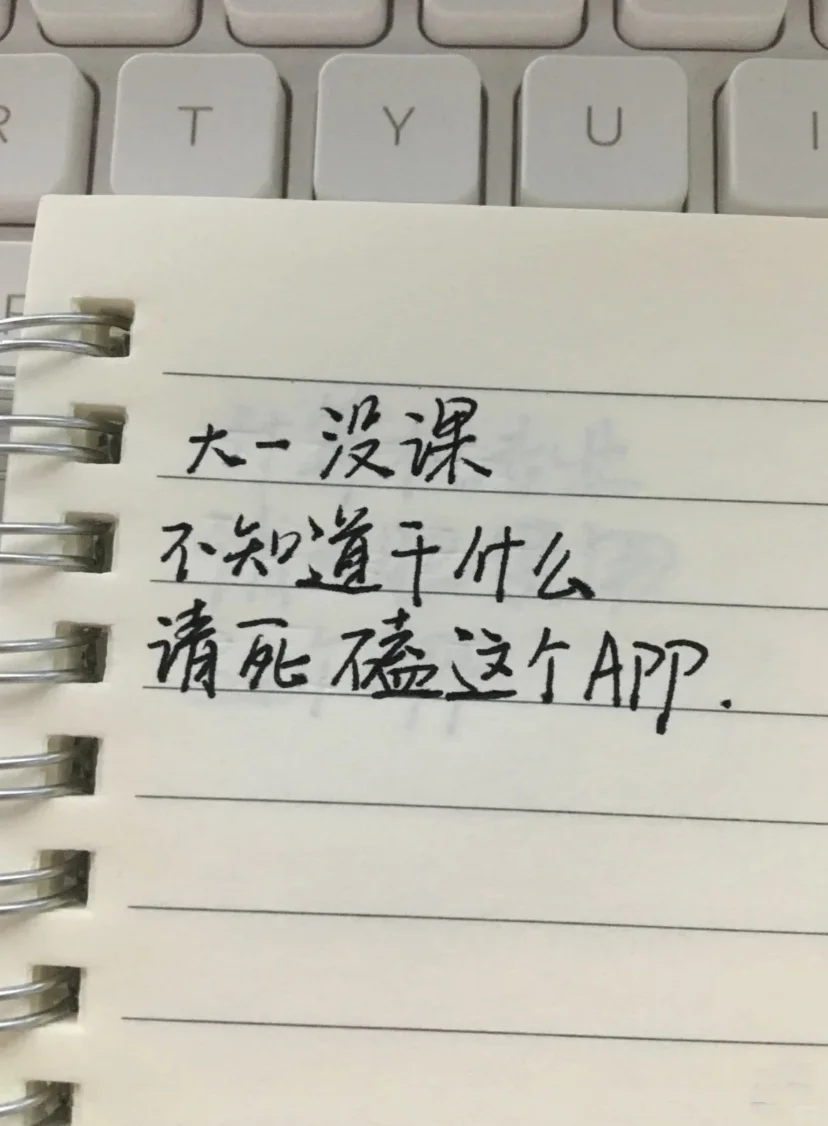 R T Y U I
大一没课
不知道干什么
请死磕这个APP.